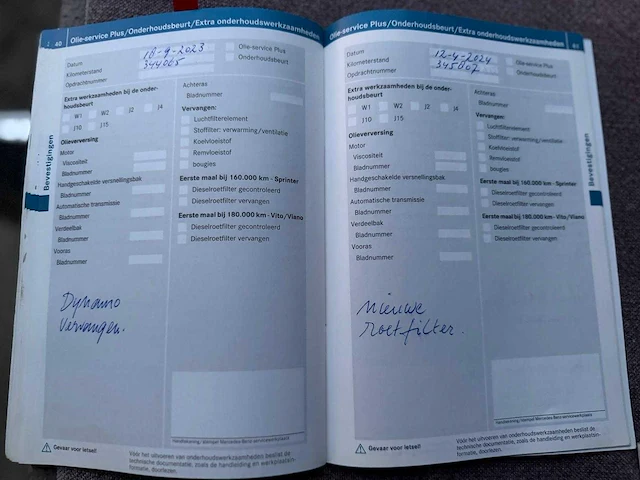 40
Olie-service Plus/Onderhoudsbeurt/Extra onderhoudswerkzaamheden
Datum 18-9-2023
Kilometerstand 344065
Opdrachtnummer
Olie-service Plus
Onderhoudsbeurt
Extra werkzaamheden bij de onder-
houdsbeurt
W1 W2 J2 J4
J10 J15
Olieverversing
Motor
Viscositeit
Bladnummer
Handgeschakelde versnellingsbak
Bladnummer
Automatische transmissie
Bladnummer
Verdeelbak
Bladnummer
Vooras
Bladnummer
Achteras
Bladnummer
Vervangen:
Luchtfilterelement
Stoffilter: verwarming/ventilatie
Koelvloeistof
Remvloeistof
bougies
Eerste maal bij 160.000 km - Sprinter
Dieselroetfilter gecontroleerd
Dieselroetfilter vervangen
Eerste maal bij 180.000 km - Vito/Viano
Dieselroetfilter gecontroleerd
Dieselroetfilter vervangen
Bevestigingen
Dynamo
Vervangen.
Handtekening/stempel Mercedes-Benz-servicewerkplaats
Gevaar voor letsel!
Vóór het uitvoeren van onderhoudswerkzaamheden beslist de
technische documentatie, zoals de handleiding en werkplaatsin-
formatie, doorlezen.
Olie-service Plus/Onderhoudsbeurt/Extra onderhoudswerkzaamheden
Datum 12-4-2024
Kilometerstand 345007
Opdrachtnummer
Olie-service Plus
Onderhoudsbeurt
Extra werkzaamheden bij de onder-
houdsbeurt
W1 W2 J2 J4
J10 J15
Olieverversing
Motor
Viscositeit
Bladnummer
Handgeschakelde versnellingsbak
Bladnummer
Automatische transmissie
Bladnummer
Verdeelbak
Bladnummer
Vooras
Bladnummer
Achteras
Bladnummer
Vervangen:
Luchtfilterelement
Stoffilter: verwarming/ventilatie
Koelvloeistof
Remvloeistof
bougies
Eerste maal bij 160.000 km - Sprinter
Dieselroetfilter gecontroleerd
Dieselroetfilter vervangen
Eerste maal bij 180.000 km - Vito/Viano
Dieselroetfilter gecontroleerd
Dieselroetfilter vervangen
Bevestigingen
Nieuwe
Roetfilter.
Handtekening/stempel Mercedes-Benz-servicewerkplaats
Gevaar voor letsel!
Vóór het uitvoeren van onderhoudswerkzaamheden beslist de
technische documentatie, zoals de handleiding en werkplaatsin-
formatie, doorlezen.